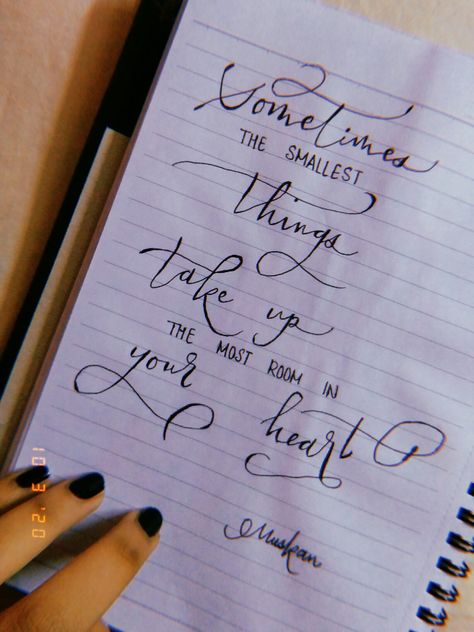 Sometimes
THE SMALLEST
things
take up
THE MOST ROOM IN
your heart
Muskan
10 3 '20